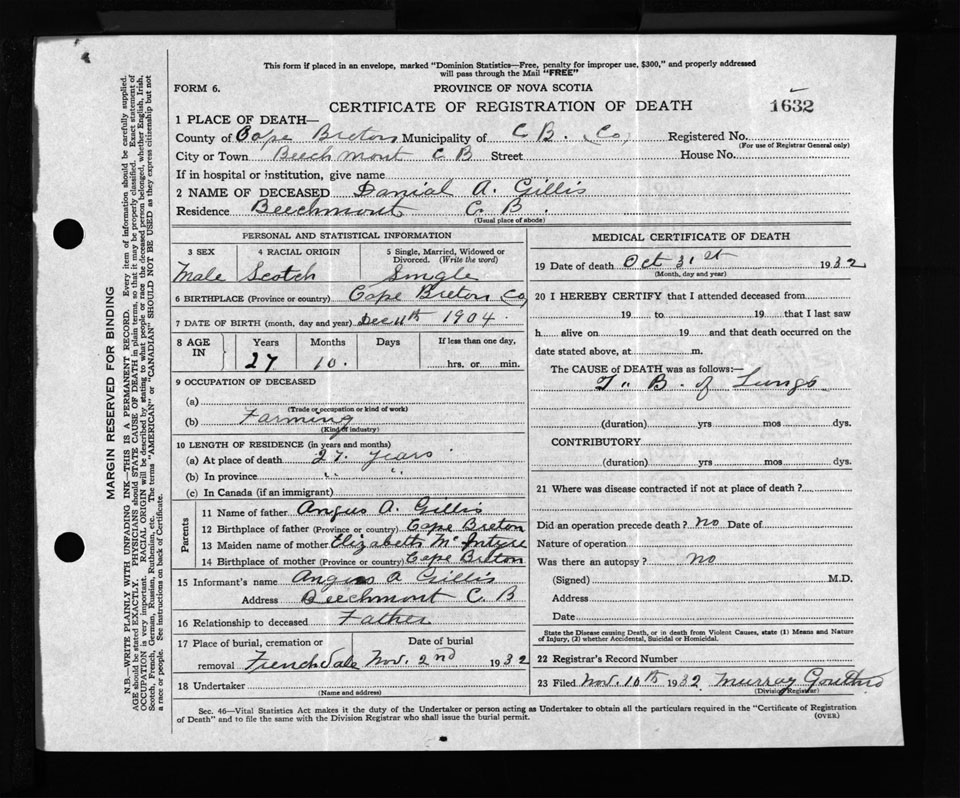 This form if placed in an envelope, marked "Dominion Statistics—Free, penalty for improper use, $300," and properly addressed
will pass through the Mail "FREE"
FORM 6. PROVINCE OF NOVA SCOTIA
CERTIFICATE OF REGISTRATION OF DEATH 1632
1 PLACE OF DEATH—
County of Cape Breton Municipality of C B. Co, Registered No.
(For use of Registrar General only)
City or Town Beechmont C B Street House No.
If in hospital or institution, give name
2 NAME OF DECEASED Danial A. Gillis
Residence Beechmont C. B.
(Usual place of abode)
PERSONAL AND STATISTICAL INFORMATION
3 SEX 4 RACIAL ORIGIN 5 Single, Married, Widowed or Divorced. (Write the word)
Male Scotch Single
6 BIRTHPLACE (Province or country) Cape Breton Co,
7 DATE OF BIRTH (month, day and year) Dec 11th 1904.
8 AGE IN Years Months Days If less than one day,
27 10. hrs. or min.
9 OCCUPATION OF DECEASED
(a)
(Trade or occupation or kind of work)
(b) Farming
(Kind of industry)
10 LENGTH OF RESIDENCE (in years and months)
(a) At place of death 27. years
(b) In province " "
(c) In Canada (if an immigrant)
Parents
11 Name of father Angus A. Gillis
12 Birthplace of father (Province or country) Cape Breton
13 Maiden name of mother Elizabeth McIntyre
14 Birthplace of mother (Province or country) Cape Breton
15 Informant's name Angus A Gillis
Address Beechmont C. B
16 Relationship to deceased Father
17 Place of burial, cremation or removal Date of burial
Frenchvale Nov. 2nd 1932
18 Undertaker
(Name and address)
MEDICAL CERTIFICATE OF DEATH
19 Date of death Oct 31st 1932
(Month, day and year)
20 I HEREBY CERTIFY that I attended deceased from
19 to 19 that I last saw
h alive on 19 and that death occurred on the
date stated above, at m.
The CAUSE of DEATH was as follows:—
T. B. of Lungs
(duration) yrs mos dys.
CONTRIBUTORY
(duration) yrs mos dys.
21 Where was disease contracted if not at place of death?
Did an operation precede death? No Date of
Nature of operation
Was there an autopsy? No
(Signed) M.D.
Address
Date
State the Disease causing Death, or in death from Violent Causes, state (1) Means and Nature
of Injury, (2) whether Accidental, Suicidal or Homicidal.
22 Registrar's Record Number
23 Filed Nov. 10th 1932 Murray
(Division Registrar)
Sec. 46—Vital Statistics Act makes it the duty of the Undertaker or person acting as Undertaker to obtain all the particulars required in the "Certificate of Registration
of Death" and to file the same with the Division Registrar who shall issue the burial permit. (OVER)
MARGIN RESERVED FOR BINDING
N.B.—WRITE PLAINLY WITH UNFADING INK—THIS IS A PERMANENT RECORD. Every item of information should be carefully supplied.
AGE should be stated EXACTLY. PHYSICIANS should STATE CAUSE OF DEATH in plain terms, so that it may be properly classified. Exact statement of
OCCUPATION is very important. RACIAL ORIGIN will be described by stating to what people or race the deceased person belonged, whether English, Irish,
Scotch, French, German, Russian, Ruthenian, etc. The terms "AMERICAN" or "CANADIAN" SHOULD NOT BE USED as they express citizenship but not
a race or people. See instructions on back of Certificate.